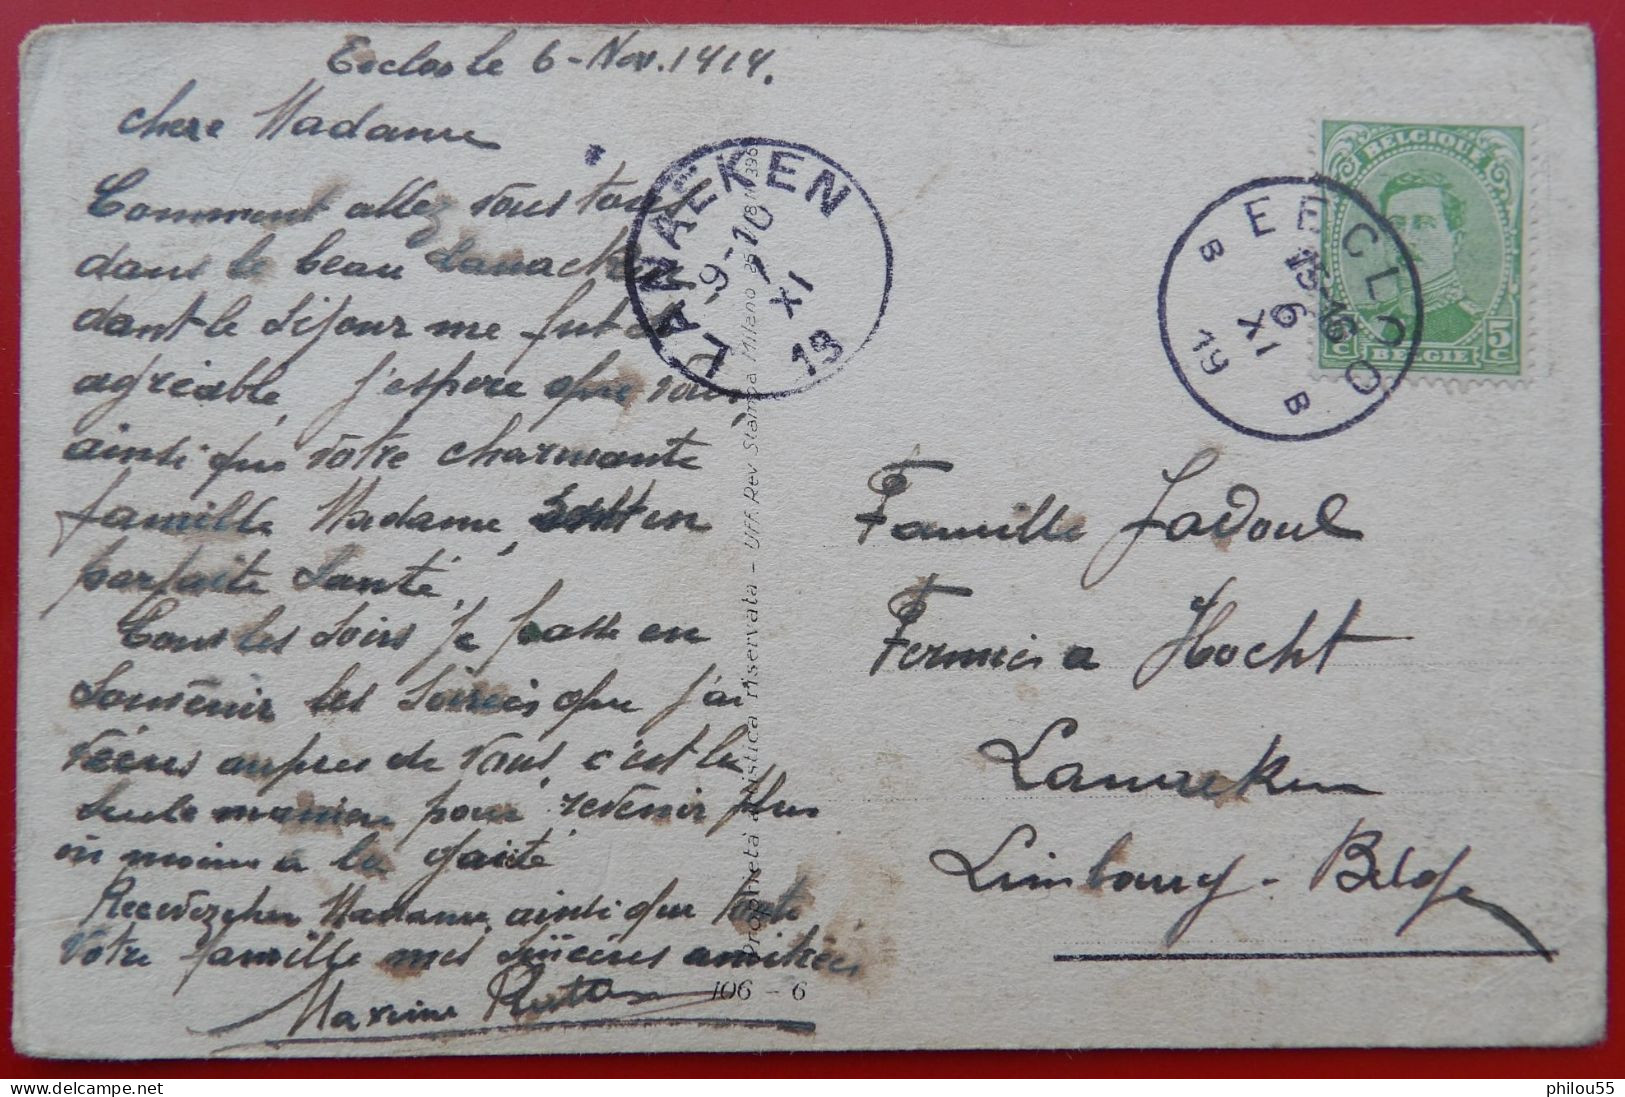 Eecloo le 6-Nov. 1919.
chere Madame
Comment allez vous tous
dans le beau Lanaeken,
dont le séjour me fut si
agréable, j'espere que vous,
ainsi que vôtre charmante
famille Madame, soit en
parfaite Santé.
Tous les soirs je passe en
souvenir les soirées que j'ai
vécues aupres de vous, c'est la
seule maniere pour revenir plus
ou moins a la gaité
Recevez cher Madame, ainsi que toute
vôtre famille mes sincères amitiés
Maxime
106 - 6
Proprietà artistica riservata - Uff. Rev. Stampa Milano 25
LANAEKEN
9-10
10
XI
19
BELGIQUE
5c 5c
BELGIE
EECLOO
15-16
6
XI
19
B B
Famille Jadoul
Fermiers a Hocht
Lanaeken
Limbourg - Belge
philou55